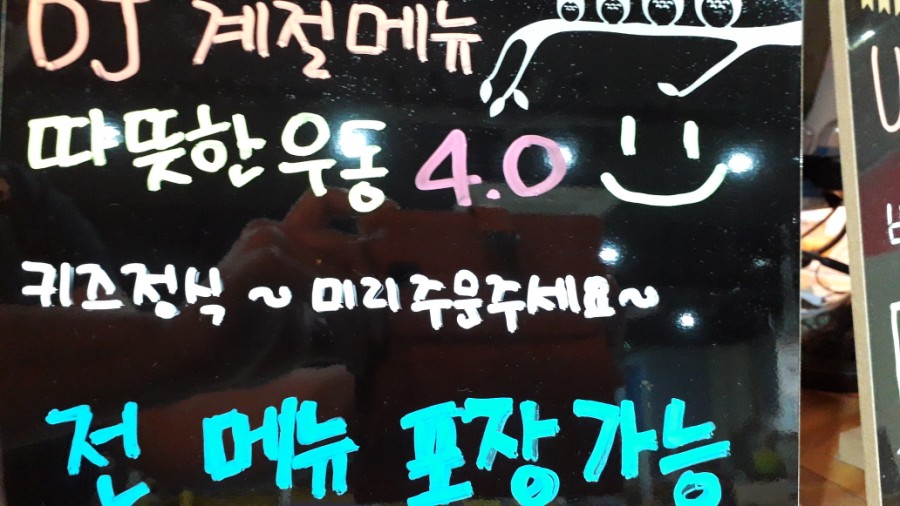 DJ 계절메뉴
따뜻한우동 4.0
키즈정식 ~ 미리주문주세요~
전 메뉴 포장가능